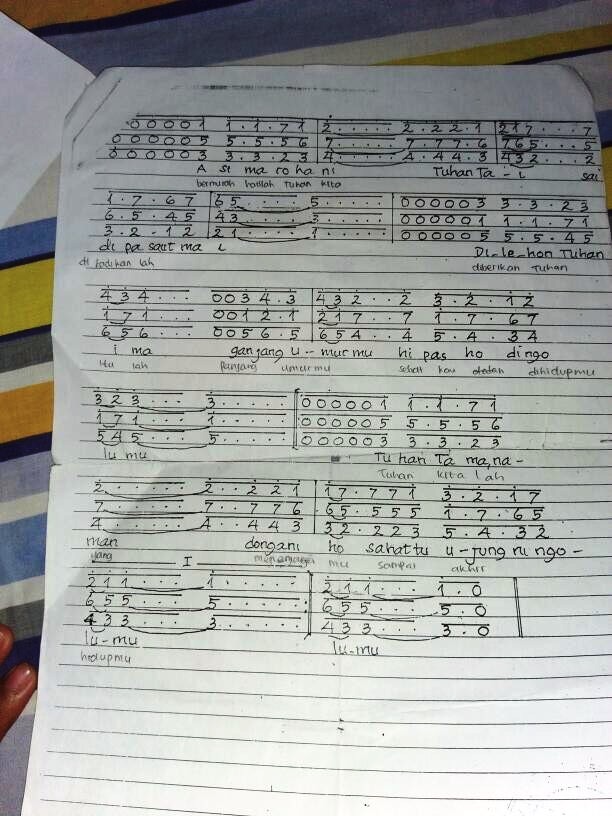 0 0 0 0 1 1 . 1 . 7 1 2 . . . . . 2 . 2 2 . 1 2 1 7 . . . 7
0 0 0 0 0 5 5 . 5 . 5 6 7 . . . . . 7 . 7 7 . 6 7 6 5 . . . 5
0 0 0 0 0 3 3 . 3 . 2 3 4 . . . . . 4 . 4 4 . 3 4 3 2 . . . 2
A si ma ro ha ni Tuhan Ta - i sai
bermurah hatilah Tuhan kita
1 . 7 . 6 7 6 5 . . . . 5 . . . . . 0 0 0 0 0 3 3 . 3 . 2 3
6 . 5 . 4 5 4 3 . . . . 3 . . . . . 0 0 0 0 0 1 1 . 1 . 7 1
3 . 2 . 1 2 2 1 . . . . 1 . . . . . 0 0 0 0 0 5 5 . 5 . 4 5
di pa saut ma i Di-le-hon Tuhan
di lah diberikan Tuhan
4 3 4 . . . 0 0 3 4 . 3 4 3 2 . . 2 3 . 2 . 1 2
1 7 1 . . . 0 0 1 2 . 1 2 1 7 . . 7 1 . 7 . 6 7
6 5 6 . . . 0 0 5 6 . 5 6 5 4 . . 4 5 . 4 . 3 4
i ma ganjang u - mur mu hi pas ho di ngo
itu lah panjang umurmu sehat kau dihidupmu
3 2 3 . . . 3 . . . . . 0 0 0 0 0 1 1 . 1 . 7 1
1 7 1 . . . 1 . . . . . 0 0 0 0 0 5 5 . 5 . 5 6
5 4 5 . . . 5 . . . . . 0 0 0 0 0 3 3 . 3 . 2 3
lu mu Tu han Ta ma, na -
Tuhan kita lah
2 . . . . . 2 . 2 2 2 1 1 7 . 7 7 1 3 . 2 . 1 7
7 . . . . . 7 . 7 7 7 6 6 5 . 5 5 5 1 . 7 . 6 5
4 . . . . . 4 . 4 4 3 3 2 . 2 2 3 5 . 4 . 3 2
man dongani ho sahat tu u - jung ni ngo -
yang I mu sampai akhir
2 1 1 . . . 1 . . . . . 2 1 1 . . . 1 . 0
6 5 5 . . . 5 . . . . . 6 5 5 . . . 5 . 0
4 3 3 . . . 3 . . . . . 4 3 3 . . . 3 . 0
lu-mu lu-mu
hidupmu